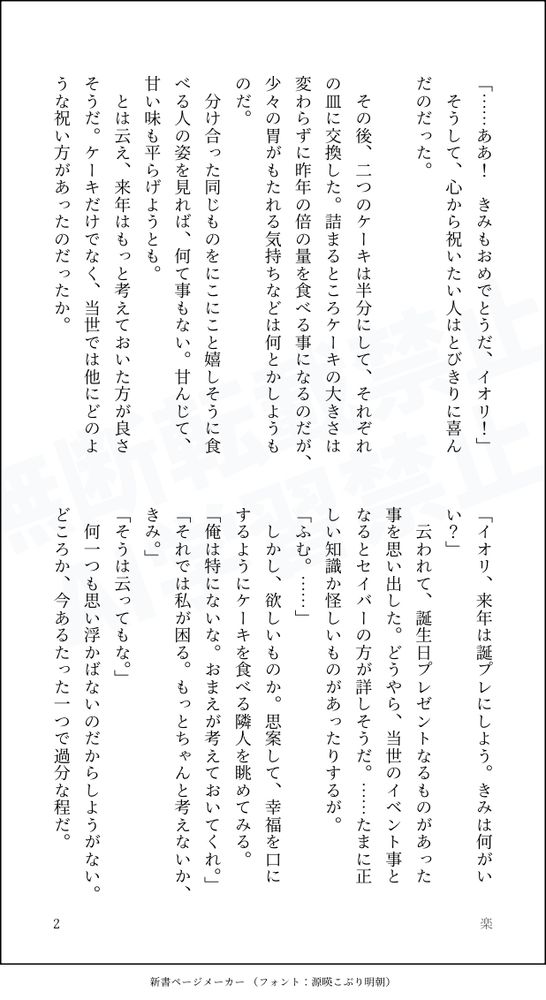 「……ああ！　きみもおめでとうだ、イオリ！」
　そうして、心から祝いたい人はとびきりに喜ん
だのだった。
　その後、二つのケーキは半分にして、それぞれ
の皿に交換した。詰まるところケーキの大きさは
変わらずに昨年の倍の量を食べる事になるのだが、
少々の胃がもたれる気持ちなどは何とかしようも
のだ。
　分け合った同じものをにこにこと嬉しそうに食
べる人の姿を見れば、何て事もない。甘んじて、
甘い味も平らげようとも。
　とは云え、来年はもっと考えておいた方が良さ
そうだ。ケーキだけでなく、当世では他にどのよ
うな祝い方があったのだったか。
「イオリ、来年は誕プレにしよう。きみは何がい
い？」
　云われて、誕生日プレゼントなるものがあった
事を思い出した。どうやら、当世のイベント事と
なるとセイバーの方が詳しそうだ。……たまに正
しい知識か怪しいものがあったりするが。
「ふむ。……」
　しかし、欲しいものか。思案して、幸福を口に
するようにケーキを食べる隣人を眺めてみる。
「俺は特にないな。おまえが考えておいてくれ。」
「それでは私が困る。もっとちゃんと考えないか、
きみ。」
「そうは云ってもな。」
　何一つも思い浮かばないのだからしようがない。
どころか、今あるたった一つで過分な程だ。
楽
2
新書ページメーカー（フォント：源暎こぶり明朝）
無断転載禁止